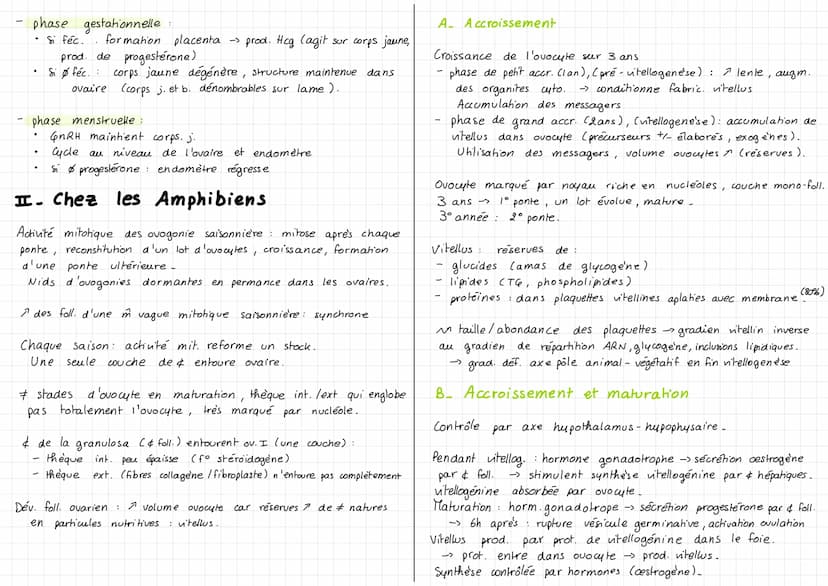 - phase gestationnelle :
• Si féc. : formation placenta → prod. Hcg (agit sur corps jaune,
prod. de progestérone)
• Si ø féc. : corps jaune dégénère, structure maintenue dans
ovaire (corps j. et b. dénombrables sur lame).
- phase menstruelle :
• GnRH maintient corps. j.
• Cycle au niveau de l'ovaire et endomètre
• Si ø progestérone : endomètre régresse
II- Chez les Amphibiens
Activité mitotique des ovogonie saisonnière : mitose après chaque
ponte, reconstitution d'un lot d'ovocytes, croissance, formation
d'une ponte ultérieure.
Nids d'ovogonies dormantes en permance dans les ovaires.
↗ des foll. d'une m̂ vague mitotique saisonnière : synchrone
Chaque saison : activité mit. reforme un stock.
Une seule couche de ¢ entoure ovaire.
≠ stades d'ovocyte en maturation, thèque int. /ext qui englobe
pas totalement l'ovocyte, très marqué par nucléole.
¢ de la granulosa (¢ foll.) entourent ov. I (une couche) :
- thèque int. peu épaisse (f° stéroïdogène)
- thèque ext. (fibres collagène / fibroplaste) n'entoure pas complètement
Dév. foll. ovarien : ↗ volume ovocyte car réserves ↗ de ≠ natures
en particules nutritives : vitellus.
A- Accroissement
Croissance de l'ovocyte sur 3 ans
- phase de petit accr. (1an), (pré-vitellogenèse) : ↗ lente, augm.
des organites cyto. → conditionne fabric. vitellus
Accumulation des messagers
- phase de grand accr. (2ans), (vitellogenèse) : accumulation de
vitellus dans ovocyte (précurseurs +/- élaborés, exogènes).
Utilisation des messagers, volume ovocytes ↗ (réserves).
Ovocyte marqué par noyau riche en nucléoles, couche mono-foll.
3 ans → 1° ponte, un lot évolue, mature.
3° année : 2° ponte.
Vitellus : réserves de :
- glucides (amas de glycogène)
- lipides (TG, phospholipides)
- protéines : dans plaquettes vitellines aplaties avec membrane. (80%)
~ taille/abondance des plaquettes → gradien vitellin inverse
au gradien de répartition ARN, glycogène, inclusions lipidiques.
→ grad. déf. axe pôle animal - végétatif en fin vitellogenèse
B- Accroissement et maturation
Contrôle par axe hypothalamus - hypophysaire.
Pendant vitellog. : hormone gonadotrophe → sécrétion oestrogène
par ¢ foll. → stimulent synthèse vitellogénine par ¢ hépatiques.
vitellogénine absorbée par ovocyte.
Maturation : horm. gonadotrope → sécrétion progestérone par ¢ foll.
→ 6h après : rupture vésicule germinative, activation ovulation
Vitellus prod. par prot. de vitellogénine dans le foie.
→ prot. entre dans ovocyte → prod. vitellus.
Synthèse contrôlée par hormones (œstrogène).